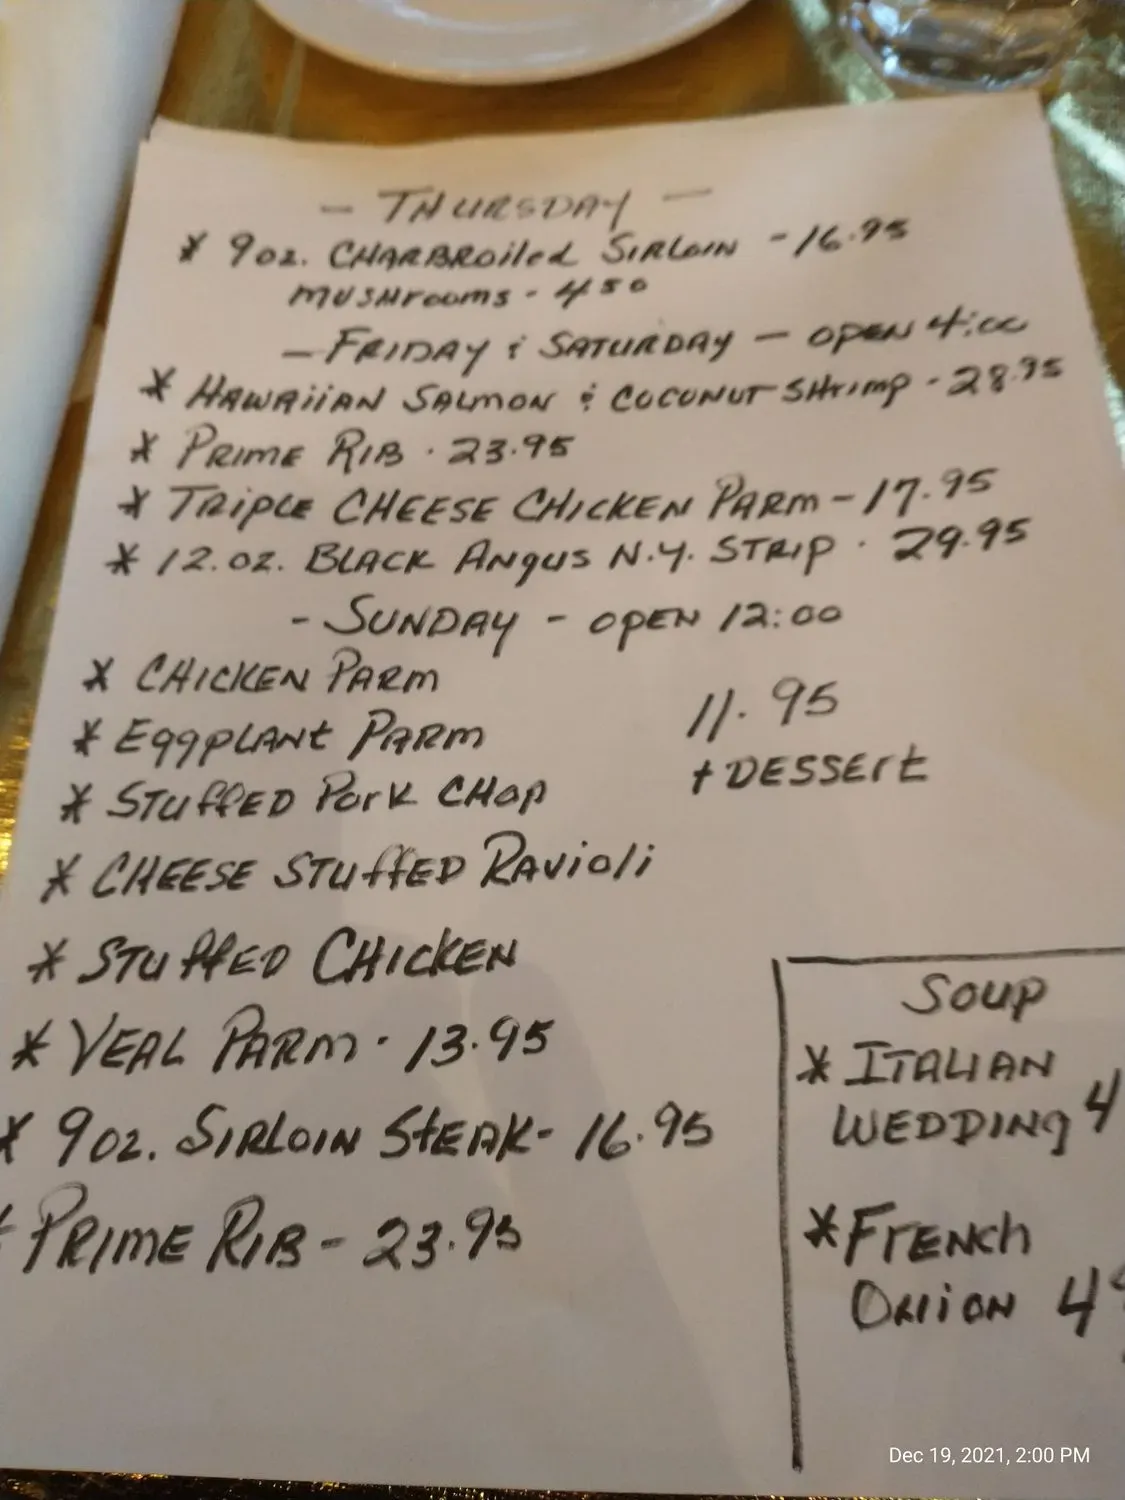 - THURSDAY -
* 9oz. CHARBROiled SIRLOIN - 16.95
MUSHrooms - 4 50
- FRIDAY & SATURDAY - OPEN 4:00
* HAWAiiAN SALMON & COCONUT SHrimp - 28.95
* PRIME RIB . 23.95
* TRIPLE CHEESE CHICKEN PARM - 17.95
* 12.oz. BLACK ANgUS N.Y. STRIP . 29.95
- SUNDAY - OPEN 12:00
* CHICKEN PARM
* EggPLANt PARM
11.95
* STUffED PorK CHOP
+ DESSERt
* CHEESE STUffED RAVioli
* STUffED CHICKEN
* VEAL PARM . 13.95
* 9oz. SIRLOIN StEAK - 16.95
* PRIME RIB - 23.95
SOUP
* ITALIAN
WEDDINg 4
* FrENCh
ONiON 4
Dec 19, 2021, 2:00 PM